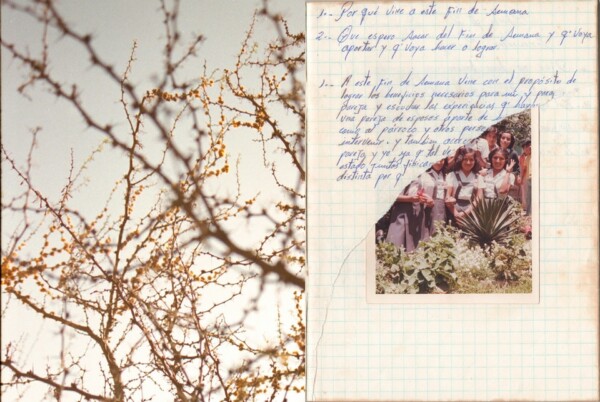 1.- Por qué vine a este fin de Semana
2.- Que espero Sacar del Fin de Semana y q' Voya
aportar y q' Voya hacer o lograr.
1.- A este fin de Semana Vine con el propósito de
lograr los beneficios necesarios para mi, y para
pareja y escuchar las experiencias q'
una pareja de esposos aparte de
como al párroco y otras
y también
y yo ya q' tal
estado juntos
distinta por q'